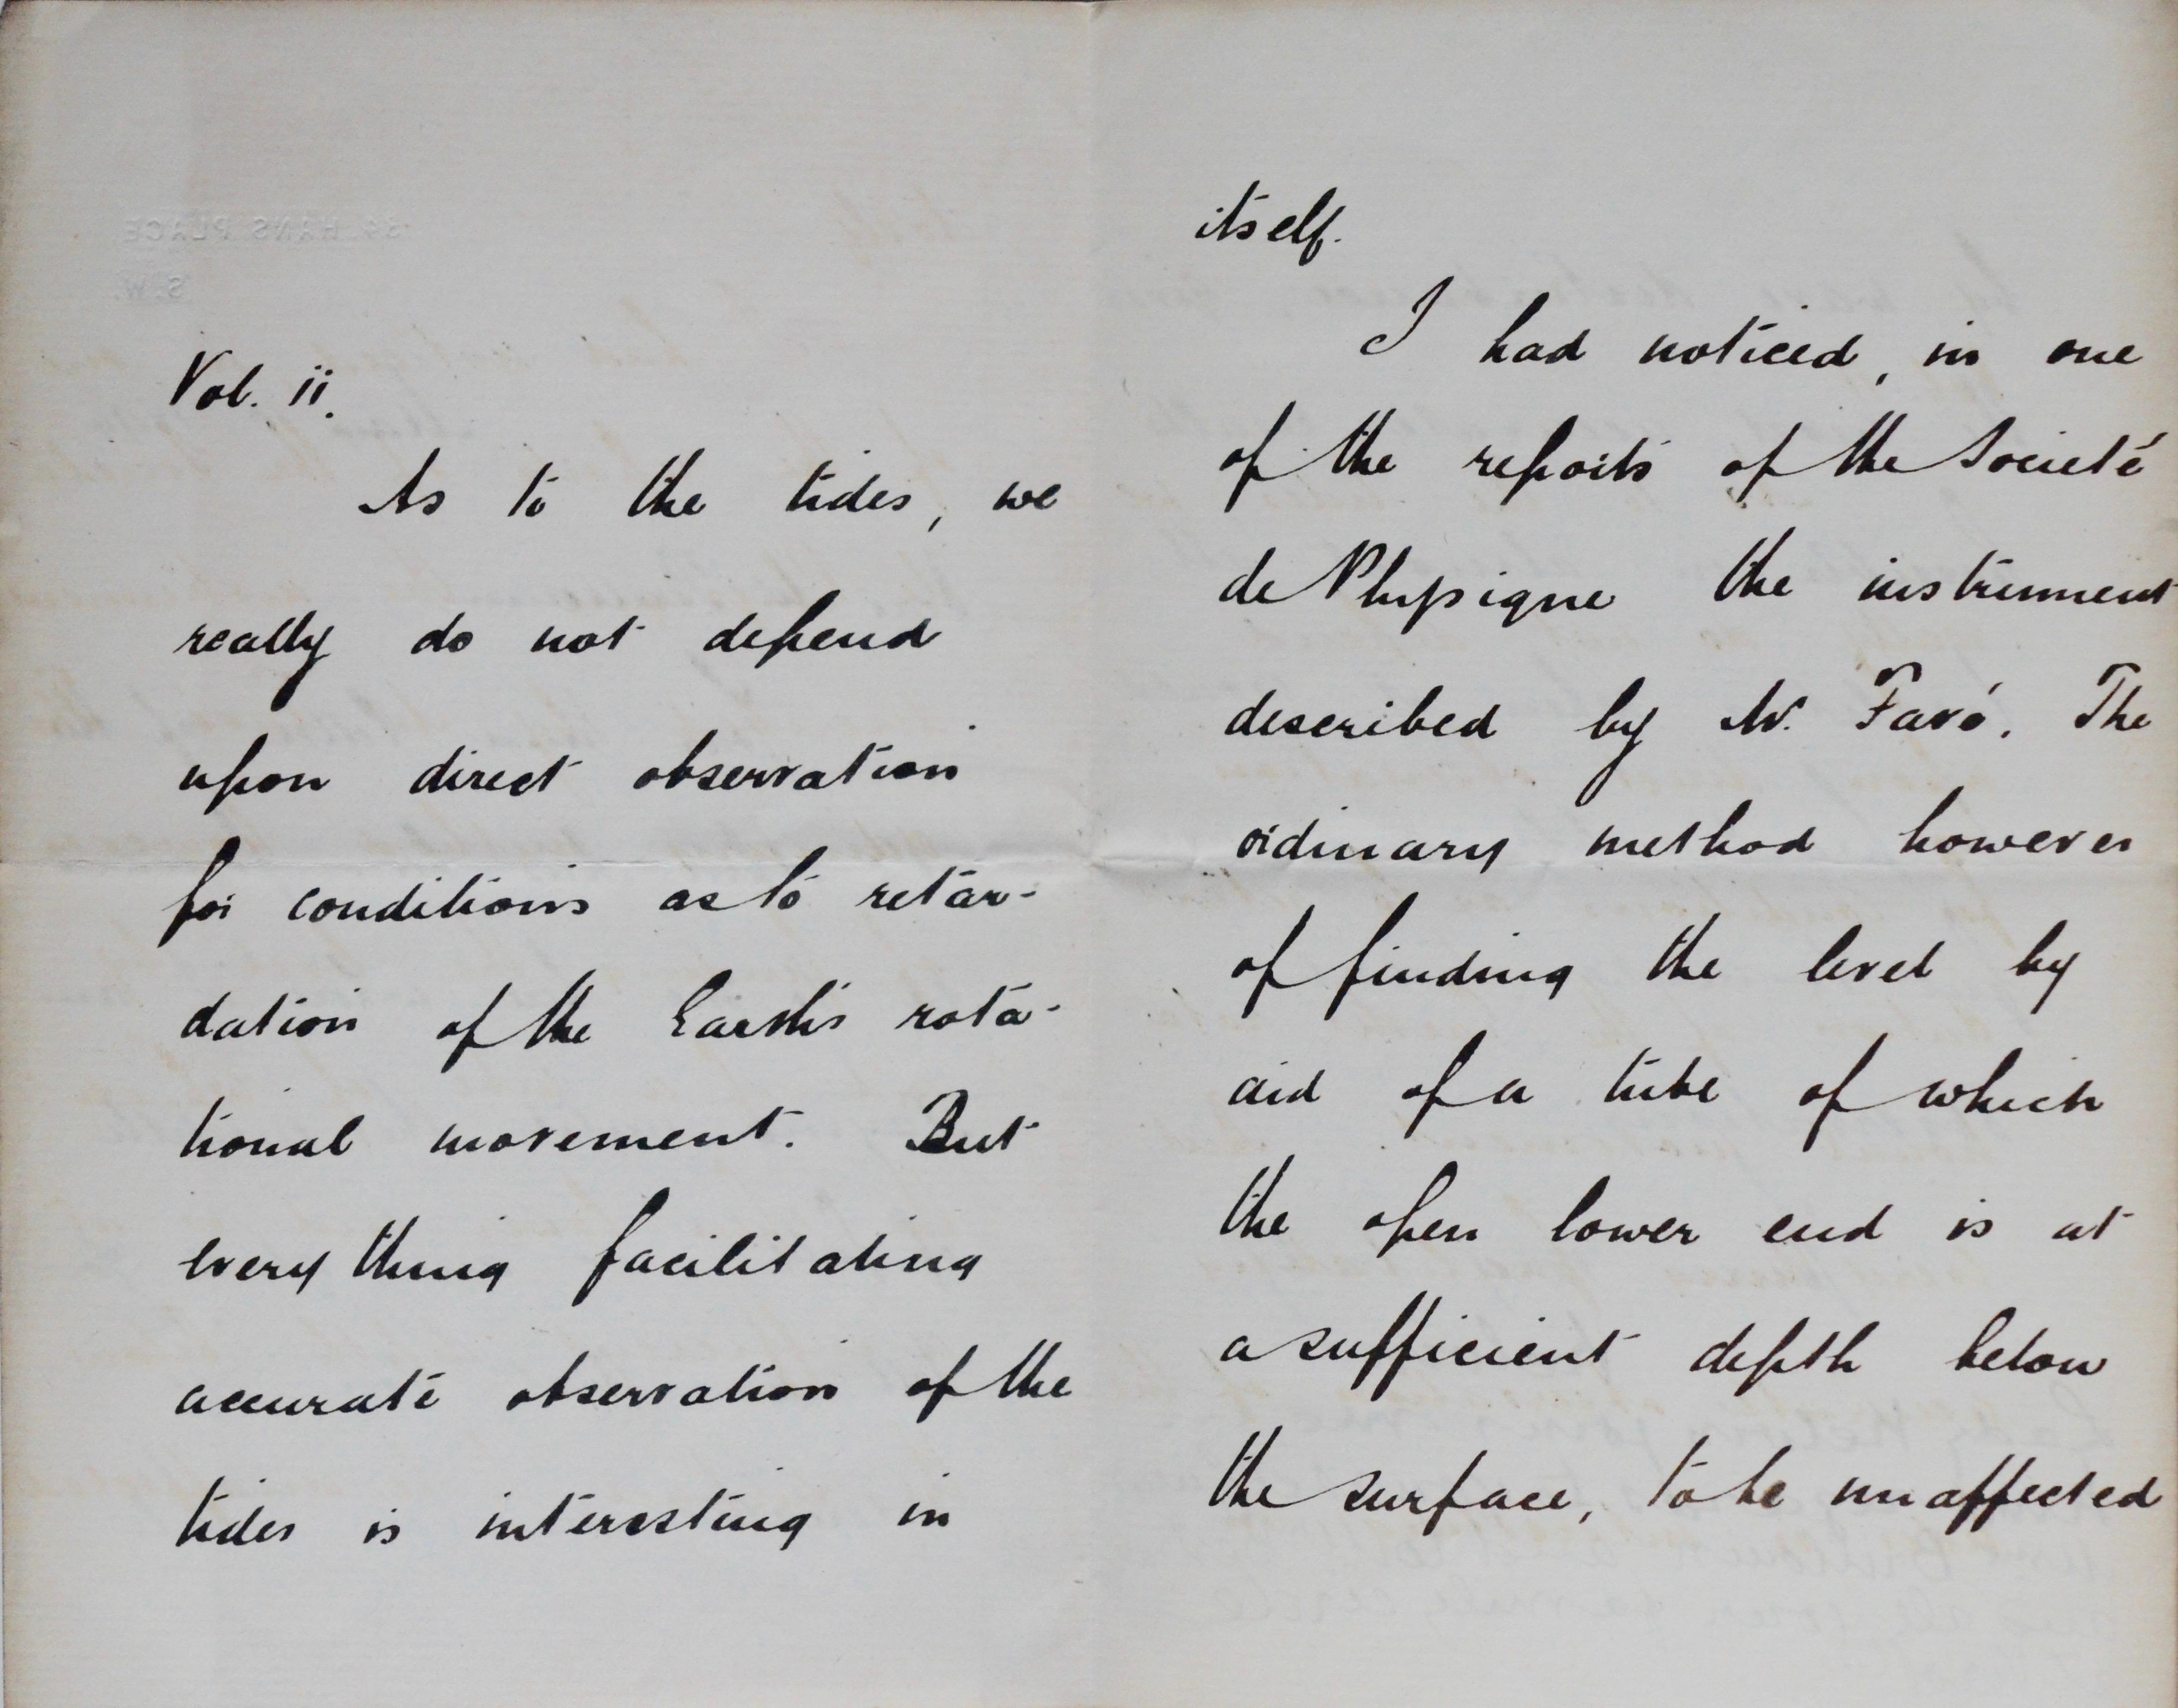 34. HANS PLACE
S.W.
Vol. ii.
As to the tides, we
really do not depend
upon direct observation
for conditions as to retar-
dation of the Earth's rota-
tional movement. But
every thing facilitating
accurate observation of the
tides is interesting in
itself.
I had noticed, in one
of the reports of the Societé
de Physique the instrument
described by M. Favé. The
ordinary method however
of finding the level by
aid of a tube of which
the open lower end is at
a sufficient depth below
the surface, to be unaffected